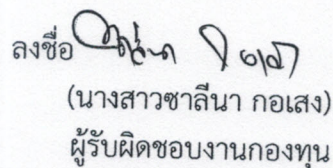 ลงชื่อ
(นางสาวซาลีนา กอเสง)
ผู้รับผิดชอบงานกองทุน